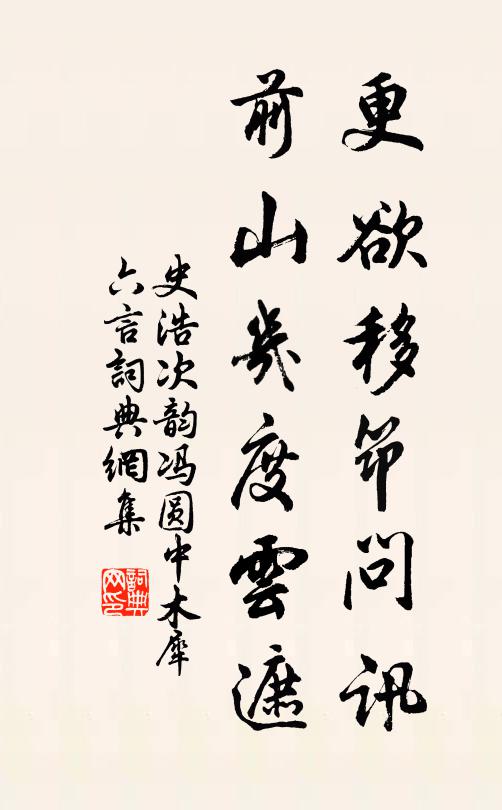 更欲移筇問訊
前山幾度雲遮
史浩次韵冯圆中木犀
六言詞典網集
詞典网印